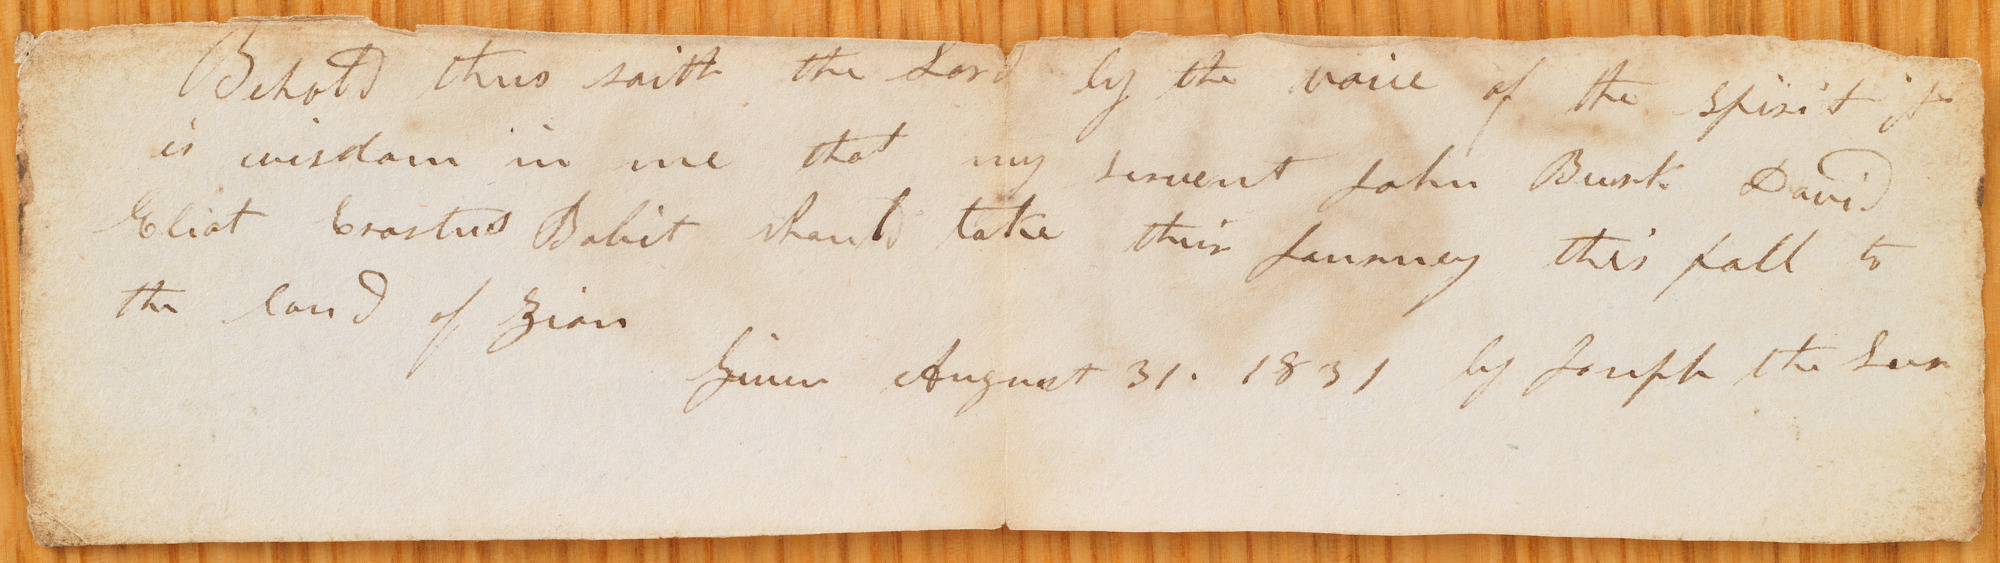 Behold thus saith the Lord by the voice of the spirit it
is wisdom in me that my servent John Burk David
Eliot Erastus Babit should take their Journey this fall to
the land of Zion
Given August 31. 1831 by Joseph the Seer